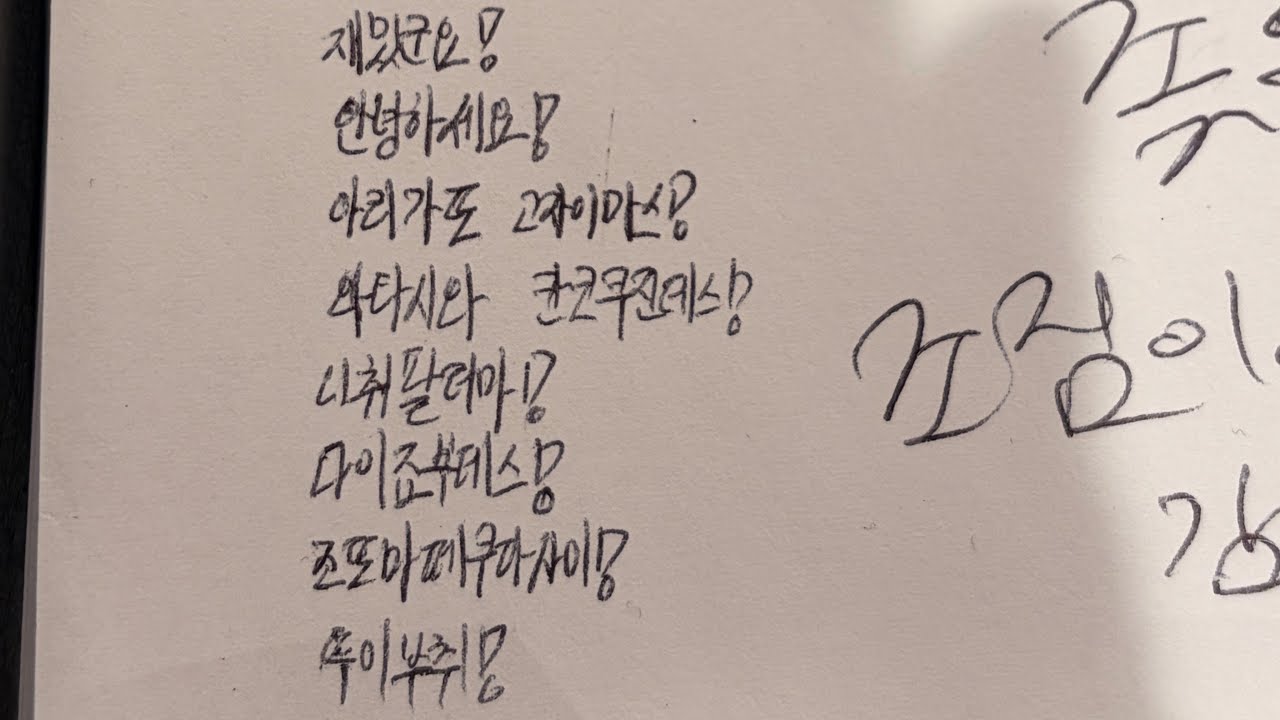 재밌군요!
안녕하세요!
아리가또 고자이마스!
와타시와 칸코쿠진데스!
니취팔러마!
다이죠부데스!
조또마떼쿠다사이!
뚜이부취!